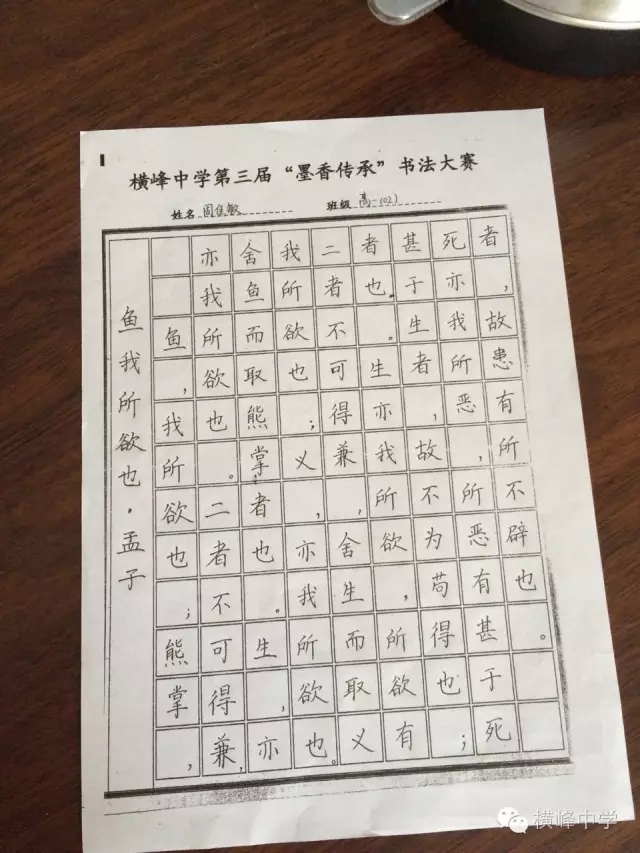 横峰中学第三届“墨香传承”书法大赛
姓名 周佳敏 班级 高一(02)
鱼我所欲也·孟子
鱼，我所欲也；熊掌，
亦我所欲也。二者不可得兼，
舍鱼而取熊掌者也。生，亦
我所欲也；义，亦我所欲也。
二者不可得兼，舍生而取义
者也。生亦我所欲，所欲有
甚于生者，故不为苟得也；
死亦我所恶，所恶有甚于死
者，故患有所不辟也。
横峰中学